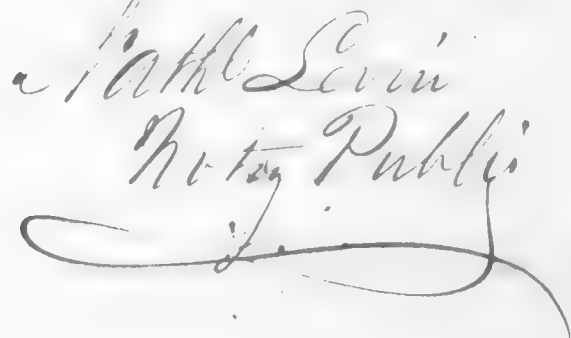 Nathl Levin
Notry Public